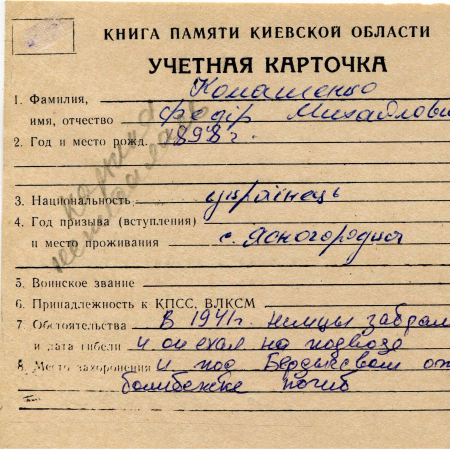 КНИГА ПАМЯТИ КИЕВСКОЙ ОБЛАСТИ
УЧЕТНАЯ КАРТОЧКА
1. Фамилия, Комашенко
имя, отчество Федір Михайлови
2. Год и место рожд. 1898 г.
3. Национальность українець
4. Год призыва (вступления)
и место проживания с. Ясногородка
5. Воинское звание
6. Принадлежность к КПСС, ВЛКСМ
7. Обстоятельства В 1941 г. немцы забрал
и дата гибели и он ехал на подводе
8. Место захоронения и под Бердычевом от
бомбежке погиб